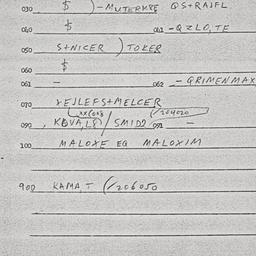 030 $ ) - MUTERKRE QS+RAJFL
040 $ 041 - QZLO, TE
050 S+NICER ) TOKER
060 $
061 - 062 - GRIMENMAX
070 XEJLEFS+MELCER
090 KBVA, L8) / SMID2 091 -
100 MALOXE EQ MALOXIM
900 KAMA, T (/206050